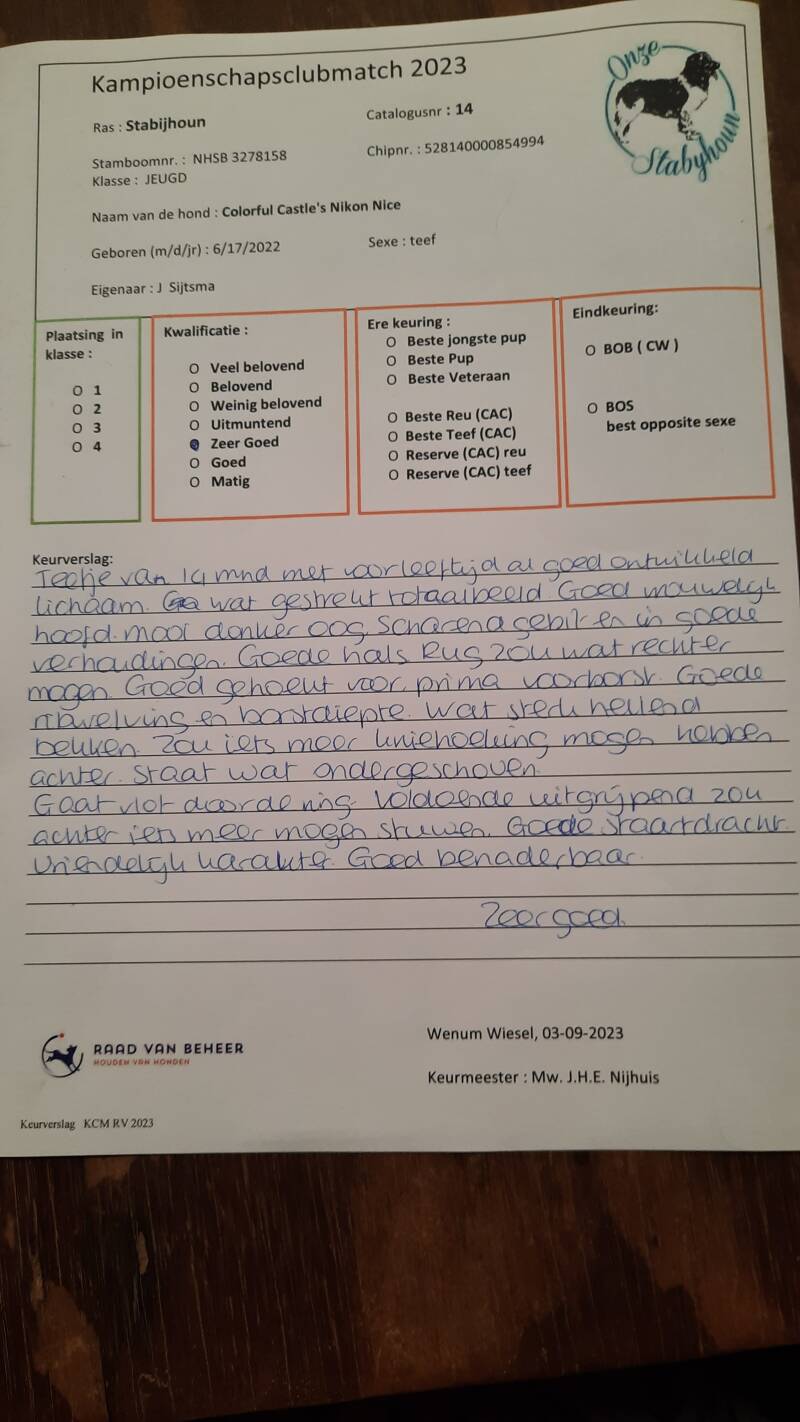 Kampioenschapsclubmatch 2023
Onze Stabyhoun
Ras : Stabijhoun
Catalogusnr : 14
Stamboomnr. : NHSB 3278158
Chipnr. : 528140000854994
Klasse : JEUGD
Naam van de hond : Colorful Castle's Nikon Nice
Geboren (m/d/jr) : 6/17/2022
Sexe : teef
Eigenaar : J Sijtsma
Plaatsing in
klasse :
O 1
O 2
O 3
O 4
Kwalificatie :
O Veel belovend
O Belovend
O Weinig belovend
O Uitmuntend
O Zeer Goed
O Goed
O Matig
Ere keuring :
O Beste jongste pup
O Beste Pup
O Beste Veteraan
O Beste Reu (CAC)
O Beste Teef (CAC)
O Reserve (CAC) reu
O Reserve (CAC) teef
Eindkeuring:
O BOB ( CW )
O BOS
best opposite sexe
Keurverslag:
Teefje van 14 mnd met voor leeftijd al goed ontwikkeld
lichaam. wat gestrekt totaalbeeld. Goed vrouwelijk
hoofd. mooi donker oog. Scharend gebit en in goede
verhoudingen. Goede hals. Rug zou wat rechter
mogen. Goed gehoekt voor, prima voorborst. Goede
ribwelving en borstdiepte. Wat sterk hellend
bekken. Zou iets meer kniehoeking mogen hebben
achter. Staat wat ondergeschoven.
Gaat vlot door de ring. Voldoende uitgrijpend zou
achter iets meer mogen stuwen. Goede staartdracht.
Vriendelijk karakter. Goed benaderbaar.
Zeer goed.
RAAD VAN BEHEER
HOUDEN VAN HONDEN
Wenum Wiesel, 03-09-2023
Keurmeester : Mw. J.H.E. Nijhuis
Keurverslag KCM RV 2023